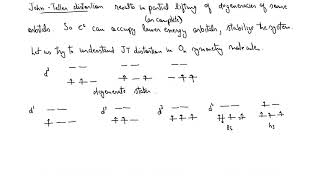 Jahn-Teller distortion results in partial lifting of degeneracies of some
(or complete)
orbitals. So e⁻s can occupy lower energy orbitals, stabilize the system.
Let us try to understand JT distortion in Oₕ symmetry molecule.
d¹
degenerate states.
d¹ d² d³ d⁴
LS HS